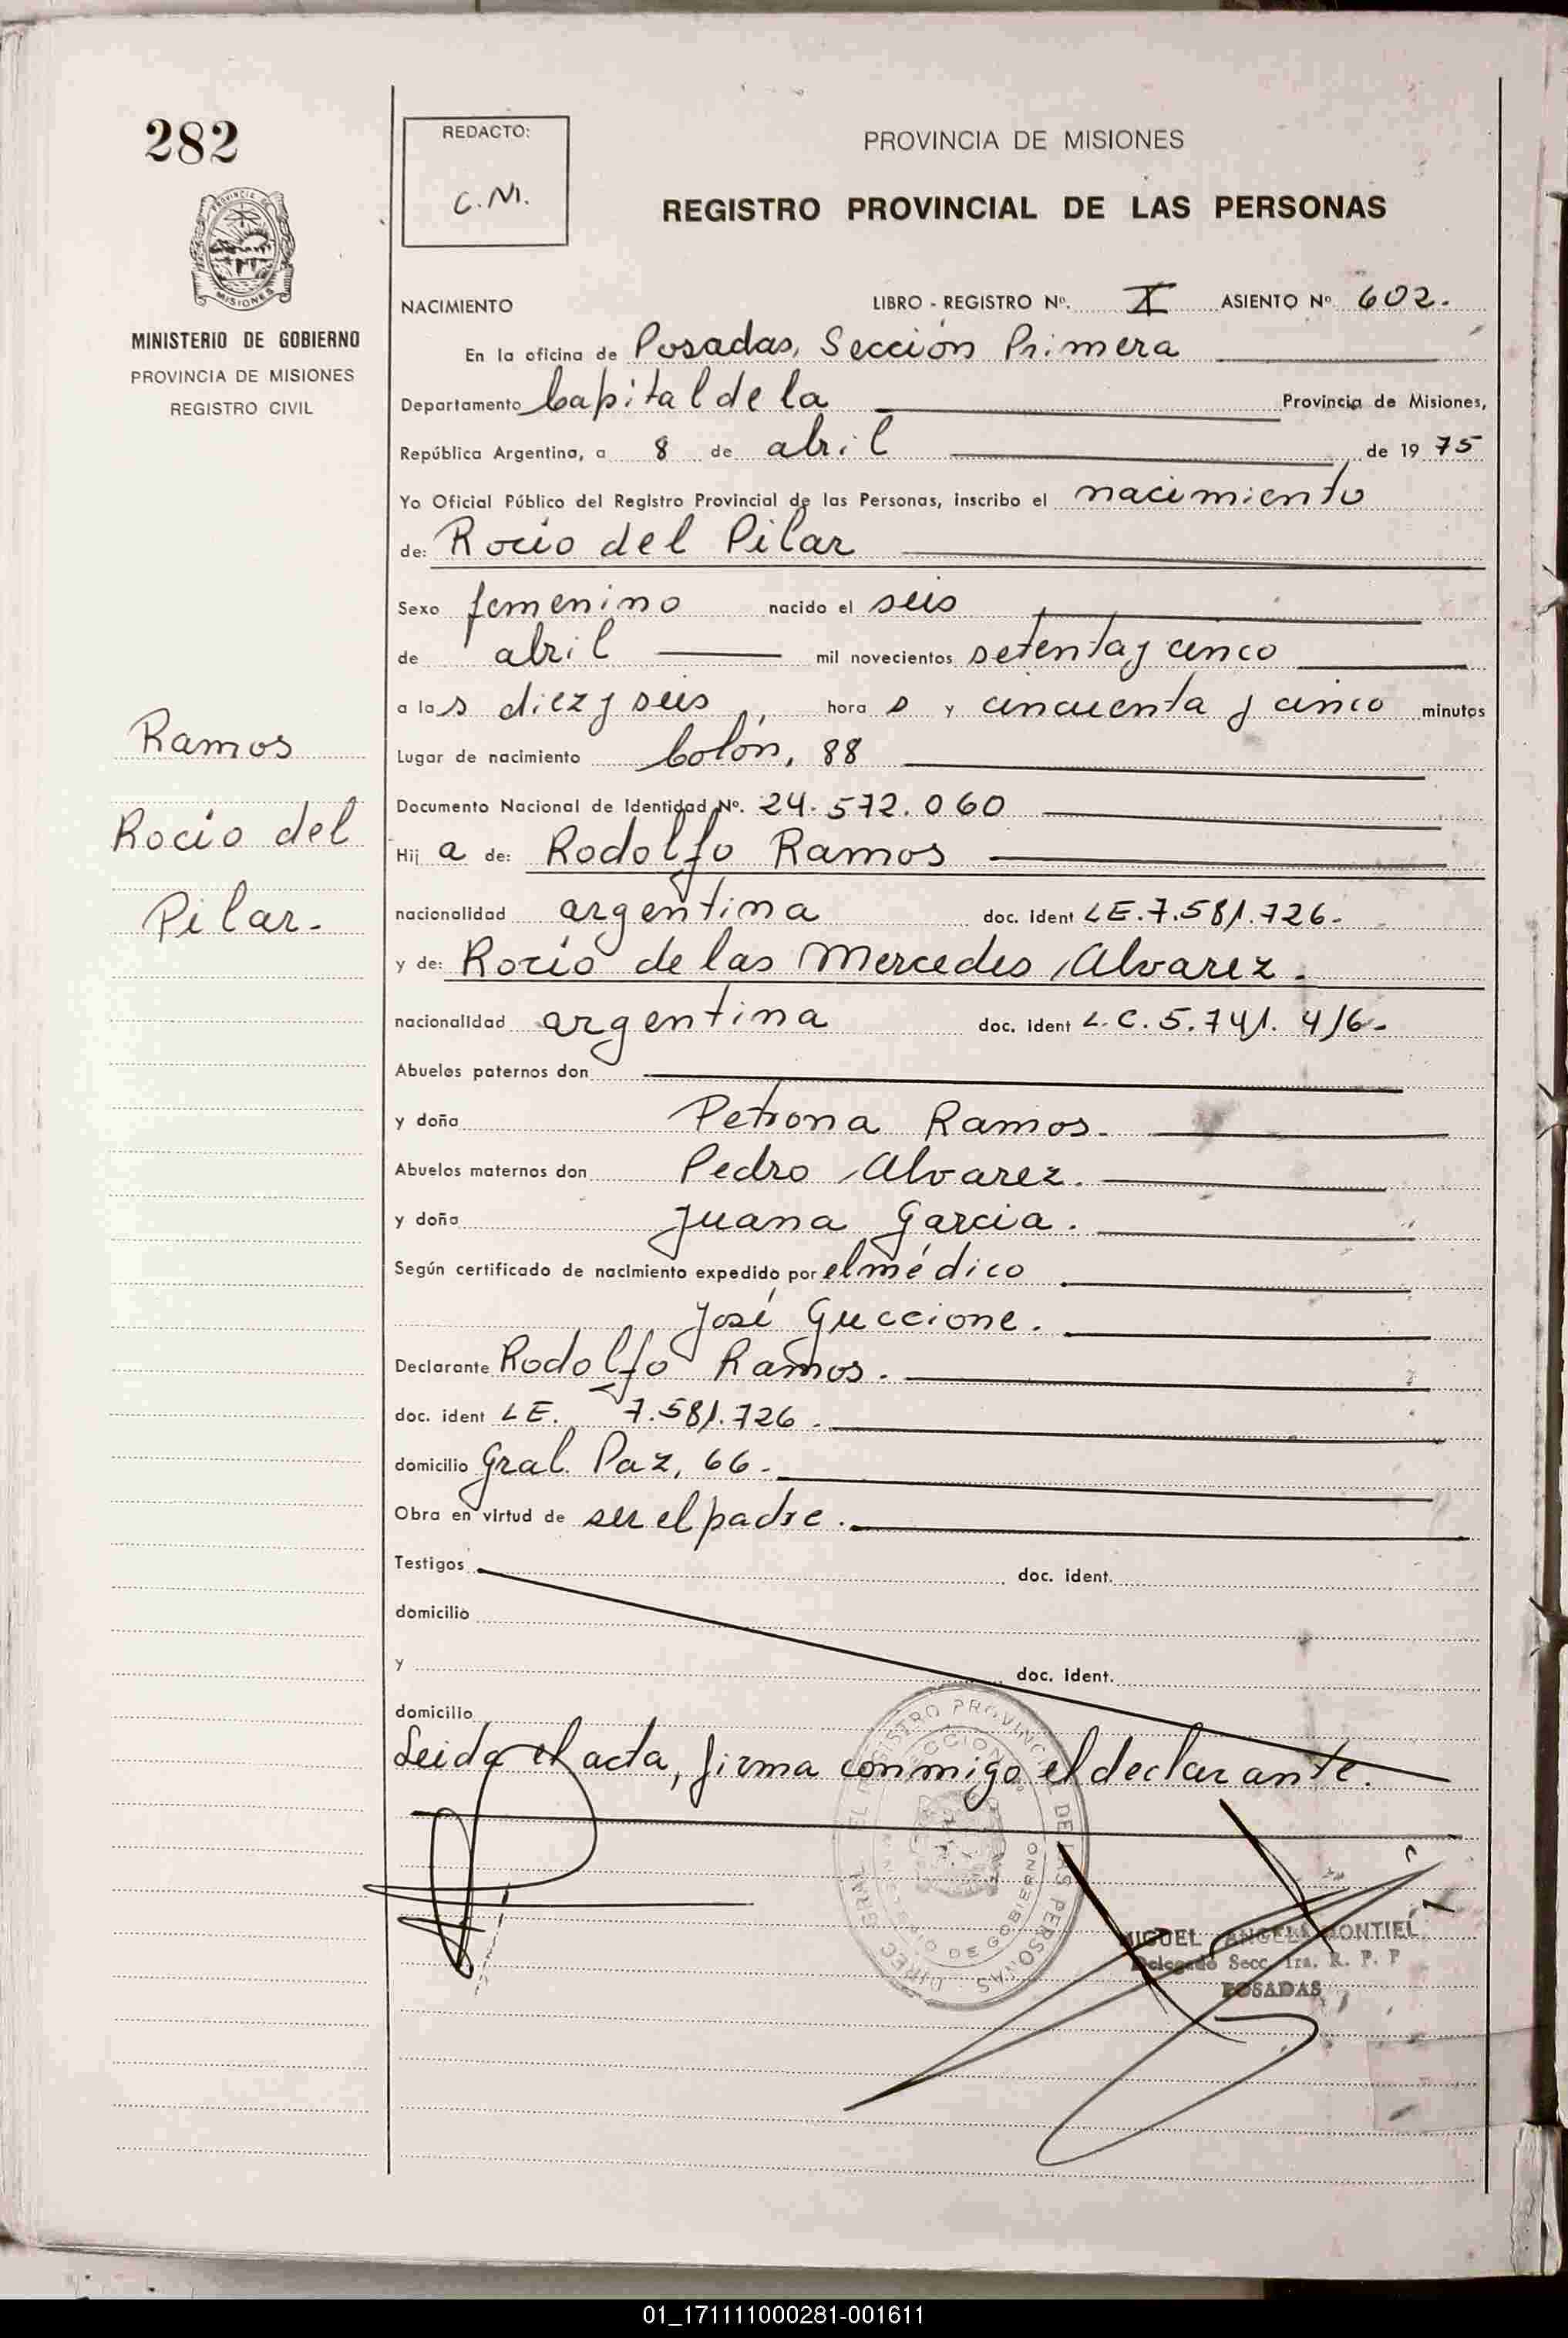 282
REDACTO:
C.M.
PROVINCIA DE MISIONES
REGISTRO PROVINCIAL DE LAS PERSONAS
MISIONES
MINISTERIO DE GOBIERNO
PROVINCIA DE MISIONES
REGISTRO CIVIL
NACIMIENTO LIBRO - REGISTRO Nº. I ASIENTO Nº 602.
En la oficina de Posadas, Sección Primera
Departamento Capital de la Provincia de Misiones,
República Argentina, a 8 de abril de 1975
Yo Oficial Público del Registro Provincial de las Personas, inscribo el nacimiento
de: Rocío del Pilar
Sexo femenino nacido el seis
de abril mil novecientos setenta y cinco
a las diez y seis, hora s y cincuenta y cinco minutos
Lugar de nacimiento Colón, 88
Documento Nacional de Identidad Nº. 24.572.060
Hij a de: Rodolfo Ramos
nacionalidad argentina doc. ident LE.7.581.726-
y de: Rocío de las Mercedes Alvarez.
nacionalidad argentina doc. ident L.C. 5.741.416-
Abuelos paternos don
y doña Petrona Ramos.
Abuelos maternos don Pedro Alvarez.
y doña Juana Garcia.
Según certificado de nacimiento expedido por el médico
José Guccione.
Declarante Rodolfo Ramos.
doc. ident LE. 7.581.726-
domicilio Gral. Paz, 66-
Obra en virtud de ser el padre.
Testigos doc. ident.
domicilio
y doc. ident.
domicilio
Leida el acta, firma conmigo el declarante.
Ramos
Rocío del
Pilar-
MIGUEL ANGEL MONTIEL
Delegado Secc. 1ra. R. P. P
POSADAS
01_171111000281-001611